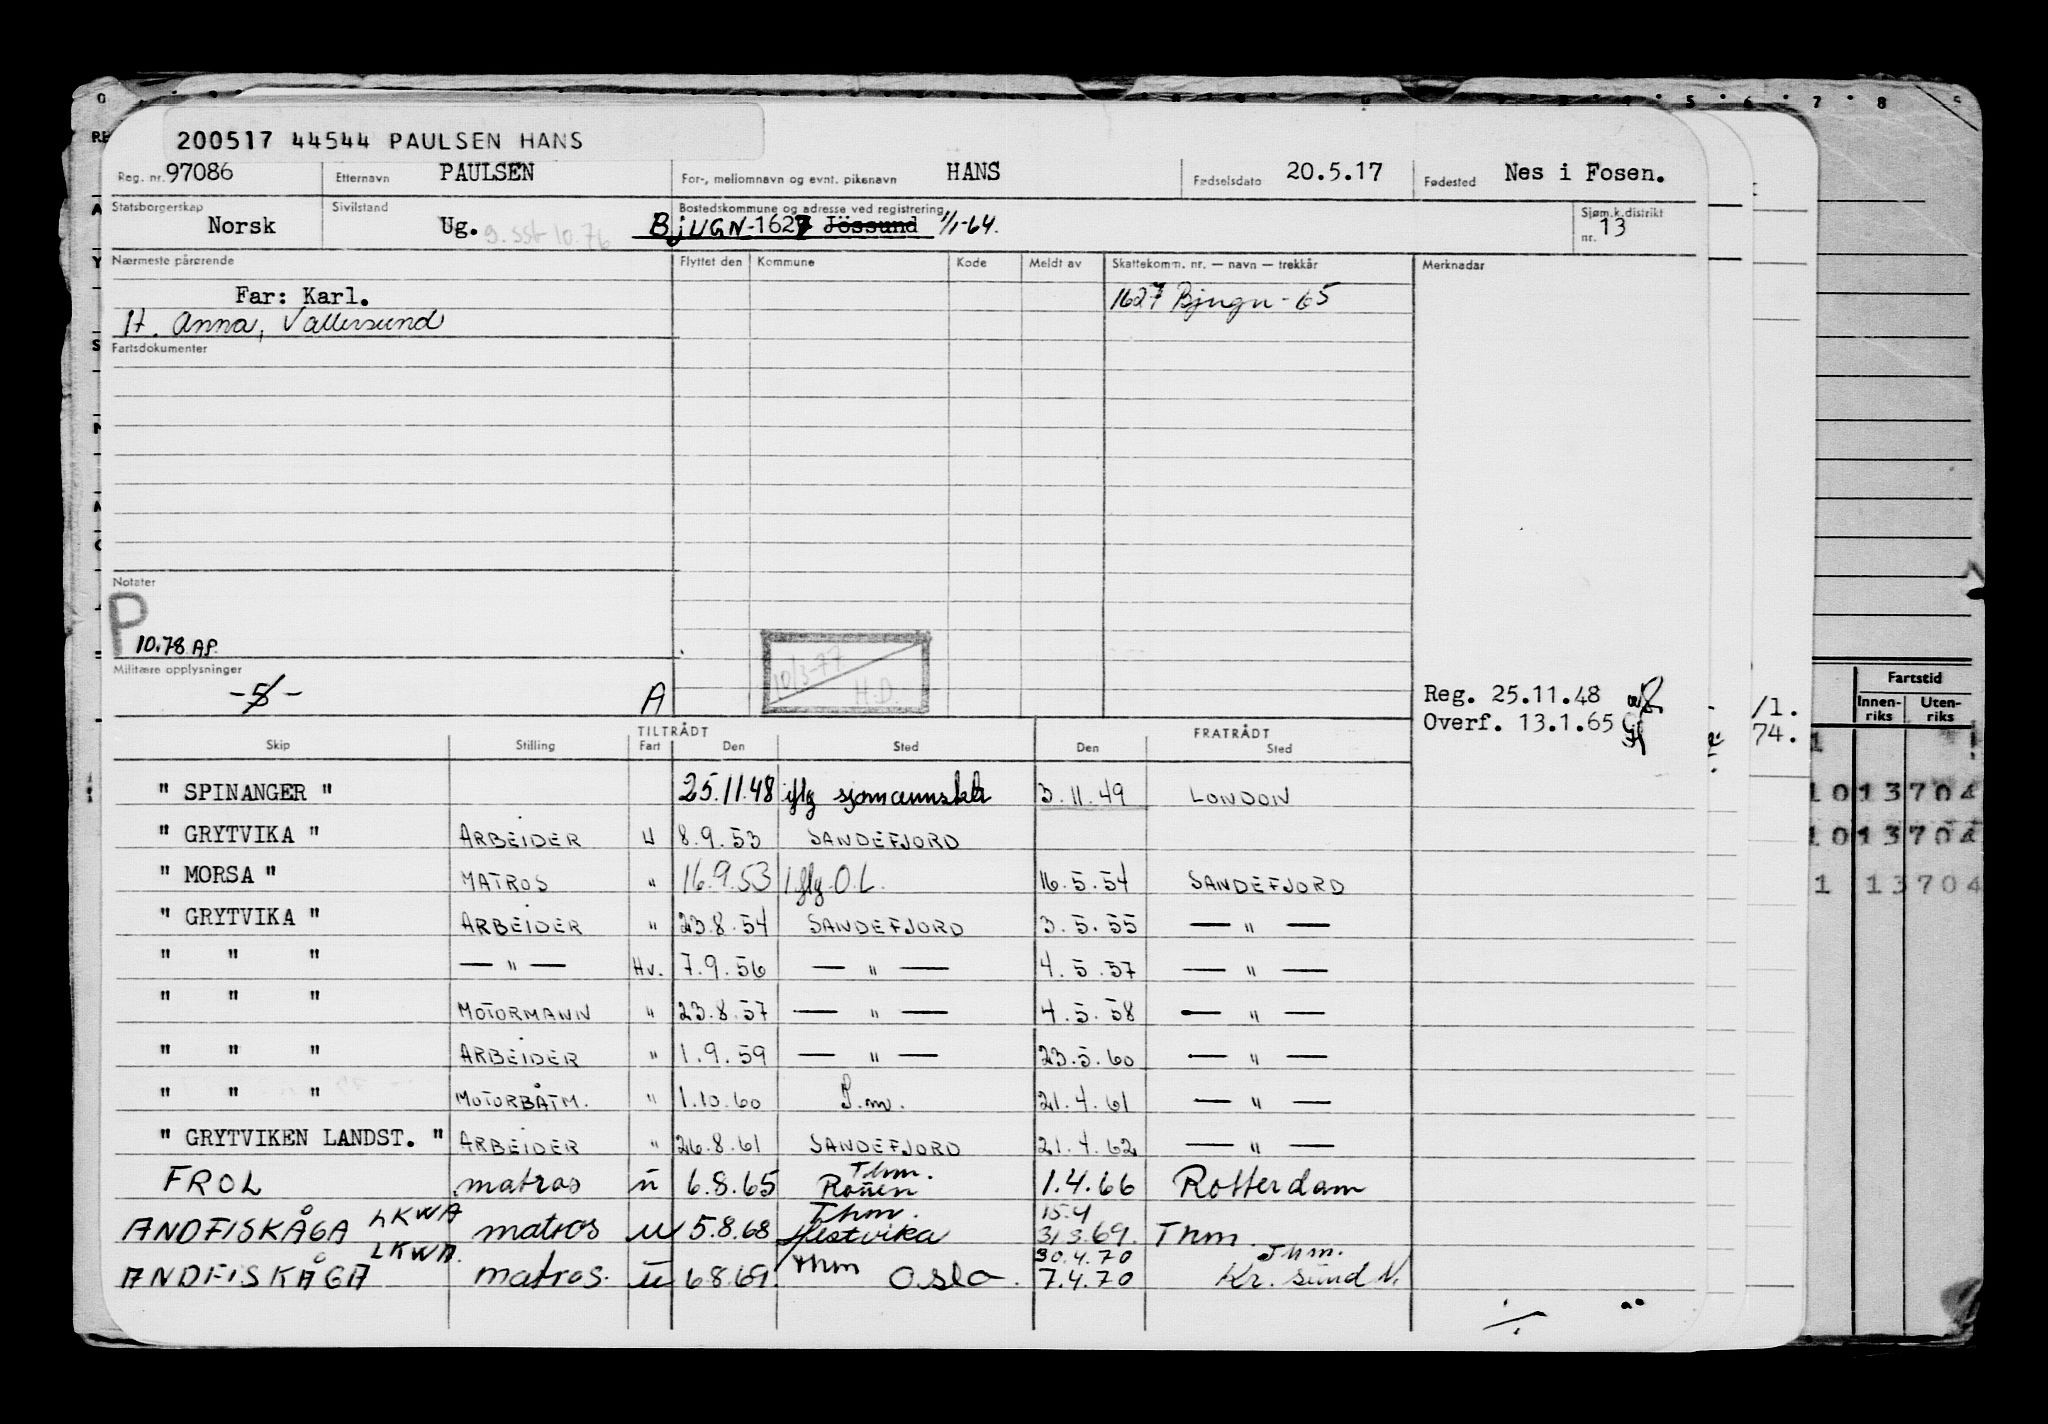 200517 44544 PAULSEN HANS
Reg. nr. 97086 Etternavn PAULSEN For-, mellomnavn og evnt. pikenavn HANS Fødselsdato 20.5.17 Fødested Nes i Fosen.
Statsborgerskap Norsk Sivilstand Ug. g. sst 10.76 Bostedskommune og adresse ved registrering BjUGN-1627 Jössund 1/1-64. Sjøm.k.distrikt nr. 13
Nærmeste pårørende Flyttet den Kommune Kode Meldt av Skattekomm. nr. — navn — trekkår Merknader
Far: Karl. 1627 Bjugn - 65
H. Anna, Vallersund
Fartsdokumenter
Notater
P 10.78 AP.
Militære opplysninger
A
10/3-77 H.D.
Reg. 25.11.48
Overf. 13.1.65
TILTRÅDT FRATRÅDT
Skip Stilling Fart Den Sted Den Sted
" SPINANGER " 25.11.48 iflg sjømannsktr 3.11.49 LONDON
" GRYTVIKA " ARBEIDER U 8.9.53 SANDEFJORD
" MORSA " MATROS " 16.9.53 iflg O.L. 16.5.54 SANDEFJORD
" GRYTVIKA " ARBEIDER " 23.8.54 SANDEFJORD 3.5.55 — " —
" " " — " — Hv. 7.9.56 — " — 4.5.57 — " —
" " " MOTORMANN " 23.8.57 — " — 4.5.58 — " —
" " " ARBEIDER " 1.9.59 — " — 23.5.60 — " —
" " " MOTORBÅTM. " 1.10.60 S.m. 21.4.61 — " —
" GRYTVIKEN LANDST. " ARBEIDER " 26.8.61 SANDEFJORD 21.4.62 — " —
FROL matros u 6.8.65 Thm. Rouen 1.4.66 Rotterdam
ANDFISKÅGA LKWA matros u 5.8.68 Thm. Hestvika 15.4 31.3.69. Thm.
ANDFISKÅGA LKWA. matros. u 6.8.69. Thm Oslo. 30.4.70 7.4.70 Thm. Kr. sund N.
/1.
74.
5 6 7 8
Fartstid
Innen-riks Uten-riks
1013704
1013704
1 13704